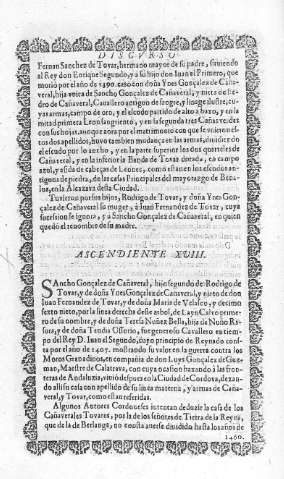 DISCVRSO
Fernan Sanchez de Tovar, hermano mayor de su padre, siruiendo
al Rey don Enrique Segundo, y a su hijo don Iuan el Primero, que
murió por el año de 1390. casò con doña Ynes Gonçalez de Cañaveral,
hija vnica de Sancho Gonçalez de Cañaveral, y nieta de
de Cañaveral, Cavallero antiguo de sangre, y linage ilustre, cu-
yas armas, campo de oro, y el escudo partido de alto a baxo, y en la
mitad primera Leon sangriento, y en la segunda tres Cañaverales
con sus hojas, aunque aora por el matrimonio con que se vnieron es-
tos dos apellidos, huvo tambien mudança en las armas, diuidiendo
el escudo por lo ancho, y en la parte superior los dos quarteles de
Cañaveral, y en lo inferior la Banda de Tovar dorada, en campo
azul, y asida de cabeças de Leones, como estàn en los escudos an-
tiguos de piedra, de las casas Principales del mayorazgo de Benalua,
en la Alcazava desta Ciudad.
Tuvieron por sus hijos, Rodrigo de Tovar, y doña Ynes Gon-
çalez de Cañaveral su muger, à Iuan Fernandez de Tovar, cuya
sucession se ignora, y a Sancho Gonçalez de Cañaveral, en quien
quedó el renombre de su madre.
ASCENDIENTE XVIII.
SAncho Gonçalez de Cañaveral, hijo segundo de Rodrigo de
Tovar, y de doña Ynes Gonçalez de Cañaveral, y nieto de don
Iuan Fernandez de Tovar, y de doña Maria de Velasco, y dezimo
sexto nieto, por la linea derecha deste arbol, de Layn Calvo prime-
ro de su nombre, y de doña Teresa Nuñez Bella, hija de Nuño Ra-
sura, y de doña Teuda Ossorio, fue generoso Cavallero en tiem-
po del Rey D. Iuan el Segundo, cuyo principio de Reynado cons-
ta por el año de 1407. mostrando su valor en la guerra contra los
Moros Granadinos, en compañia de don Luys Gonçalez de Guz-
man, Maestre de Calatrava, con cuya ocasion baxando à las fron-
teras de Andaluzia, vino despues à la Ciudad de Cordova, dexan-
do alli su casa con apellido de su linea materna, y armas de Caña-
veral, y Tovar, como estàn referidas.
Algunos Autores Cordoueses intentan deduzir la casa de los
Cañaverales Tovares, por la de los señores de Tierra de la Reyna,
que de la de Berlanga, no estaba aun este diuidido hasta los años de
1460.